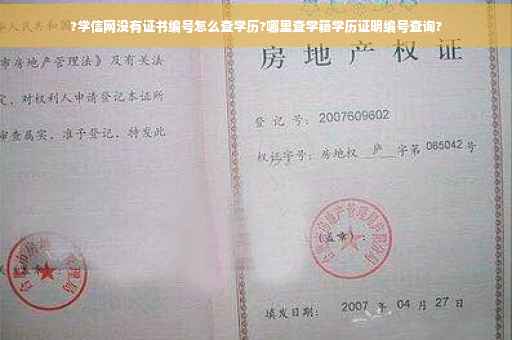 ?学信网没有证书编号怎么查学历?哪里查学籍学历证明编号查询?
人民共和国
市房地产管理法》及有关法
定,对权利人申请登记本证所
审查属实,准予登记,特发此
房地产权证
登记号:2007609602
权证字号:房地权 庐 字第 065042 号
(盖章):
填发日期: 2007 年 04 月 27 日